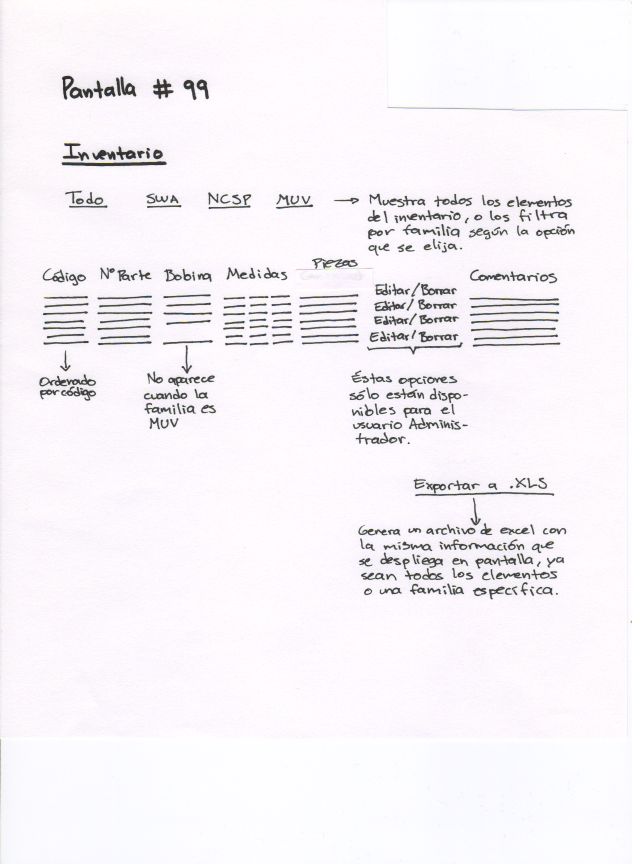 Pantalla # 99
Inventario
Todo SWA NCSP MUV → Muestra todos los elementos
del inventario, o los filtra
por familia según la opción
que se elija.
Código Nº Parte Bobina Medidas Piezas Comentarios
Editar/Borrar
Editar/Borrar
Editar/Borrar
Editar/Borrar
Ordenado
por código
No aparece
cuando la
familia es
MUV
Éstas opciones
sólo están dispo-
nibles para el
usuario Adminis-
trador.
Exportar a .XLS
Genera un archivo de excel con
la misma información que
se despliega en pantalla, ya
sean todos los elementos
o una familia específica.